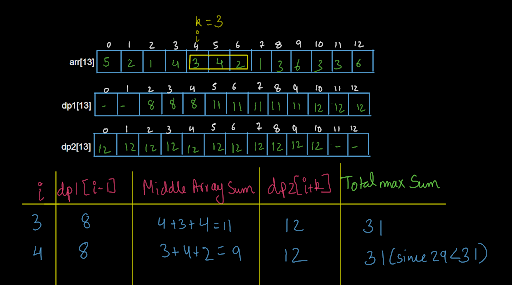 k = 3
i
0 1 2 3 4 5 6 7 8 9 10 11 12
arr[13] 5 2 1 4 3 4 2 1 3 6 3 3 6
0 1 2 3 4 5 6 7 8 9 10 11 12
dp1[13] - - 8 8 8 11 11 11 11 11 12 12 12
0 1 2 3 4 5 6 7 8 9 10 11 12
dp2[13] 12 12 12 12 12 12 12 12 12 12 12 - -
i dp1[i-1] Middle Array Sum dp2[i+k] Total max Sum
3 8 4+3+4=11 12 31
4 8 3+4+2=9 12 31 (since 29<31)